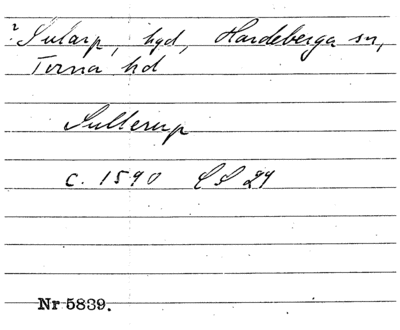 ? Sularp, hgd, Hardeberga sn,
Torna hd
Sullerup
c. 1590 LS 29
Nr 5839.